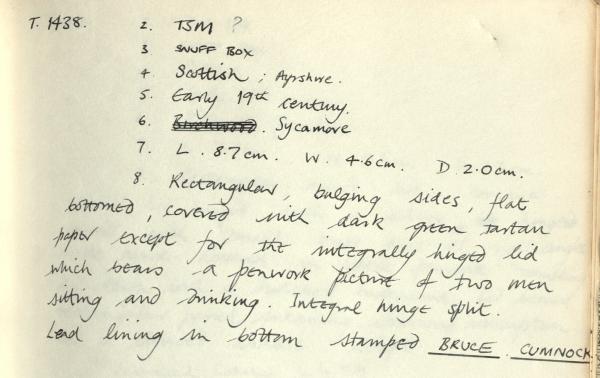 T. 1438. 2. TSM ?
3 SNUFF BOX
4 Scottish ; Ayrshire.
5. Early 19th century.
6. Birchwood. Sycamore
7. L. 8.7cm. W. 4.6cm. D. 2.0cm.
8. Rectangular, bulging sides, flat
bottomed, covered with dark green tartan
paper except for the integrally hinged lid
which bears a penwork picture of two men
sitting and drinking. Integral hinge split.
Lead lining in bottom stamped BRUCE CUMNOCK